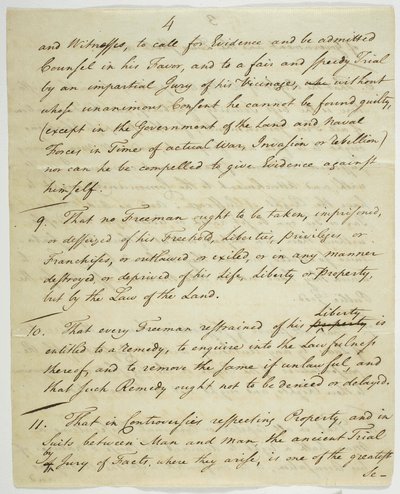 4
and Witnesses, to call for Evidence and be admitted
Counsel in his Favor, and to a fair and speedy Trial
by an impartial Jury of his Vicinage, without
whose unanimous Consent he cannot be found guilty,
(except in the Government of the Land and Naval
Forces in Time of actual War, Invasion or Rebellion)
nor can he be compelled to give Evidence against
himself.
9. That no Freeman ought to be taken, imprisoned,
or disseized of his Freehold, Liberties, Privileges or
Franchises, or outlawed or exiled, or in any manner
destroyed, or deprived of his Life, Liberty or Property,
but by the Law of the Land.
Liberty
10. That every Freeman restrained of his property is
entitled to a remedy, to enquire into the Lawfulness
thereof, and to remove the same if unlawful, and
that such Remedy ought not to be denied or delayed.
11. That in Controversies respecting Property, and in
Suits between Man and Man, the ancient Trial
by
Jury of Facts, where they arise, is one of the greatest
Se-